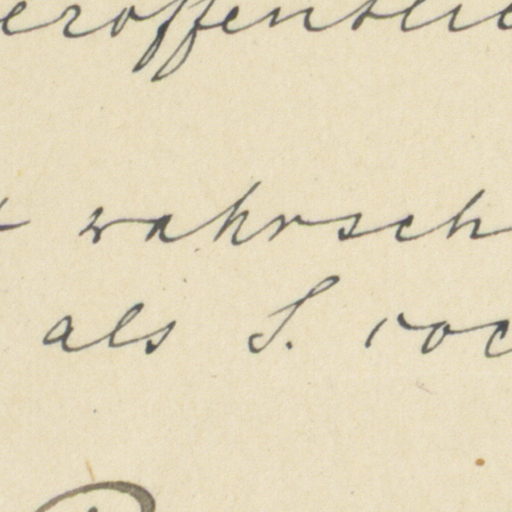 eröffentlic
wahrsch
als S.